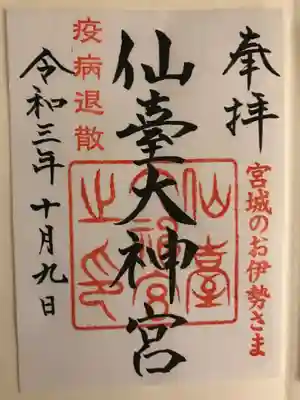 奉拝
宮城のお伊勢さま
仙臺大神宮
仙臺
大神宮
之印
疫病退散
令和三年十月九日